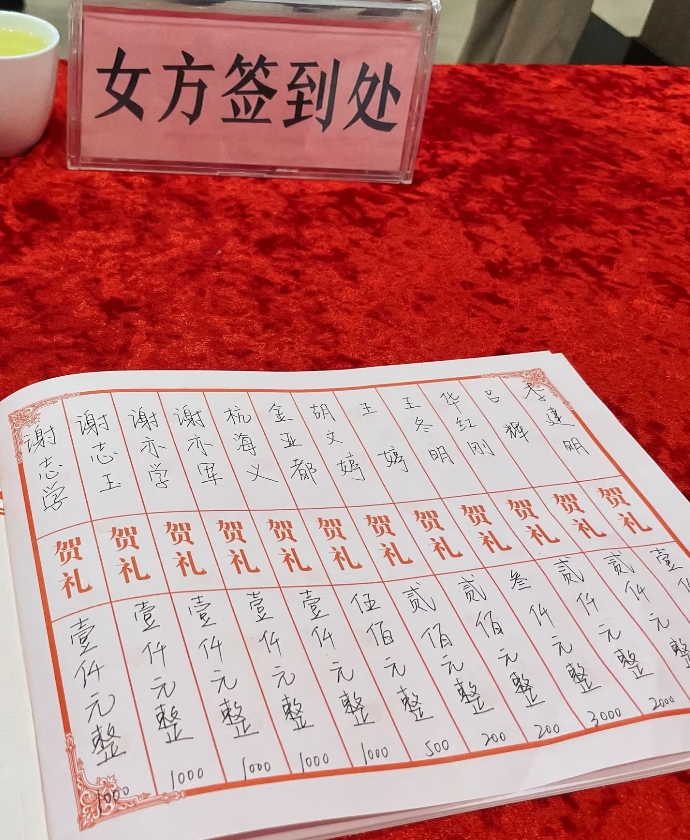 女方签到处
李建明
贺礼
壹仟元整
吕辉
贺礼
贰仟元整
华红刚
贺礼
贰仟元整
2000
王冬明
贺礼
叁仟元整
3000
王婷
贺礼
贰佰元整
200
胡文婷
贺礼
贰佰元整
200
金亚都
贺礼
伍佰元整
500
杭海义
贺礼
壹仟元整
1000
谢亦军
贺礼
壹仟元整
1000
谢亦学
贺礼
壹仟元整
1000
谢志玉
贺礼
壹仟元整
1000
谢志学
贺礼
壹仟元整
1000